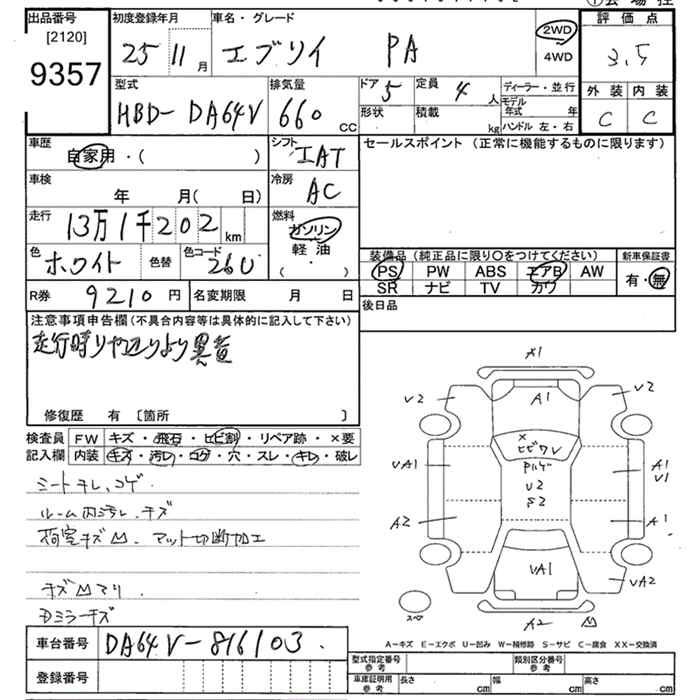 出品番号 初度登録年月 車名・グレード 評価点
[2120]
9357 25 11月 エブリイ PA 2WD 4WD 3.5
型式 排気量 ドア 5 定員 4人 ディーラー・並行 外装 内装
HBD-DA64V 660cc 形状 積載 kg モデル年式 年 ハンドル 左・右 C C
車歴 自家用・( ) シフト IAT セールスポイント (正常に機能するものに限ります)
車検 年 月( 日) 冷房 AC
走行 13万1千202km 燃料 ガソリン 軽油 ( ・ )
色 ホワイト 色替 色コード 26U 装備品 (純正品に限り○をつけてください) 新車保証書
PS PW ABS エアB AW 有・無
SR ナビ TV カワ
R券 9210円 名変期限 月 日 後日品
注意事項申告欄 (不具合内容等は具体的に記入して下さい)
走行時リヤ辺りより異音
修復歴 有 〔箇所 〕
検査員 FW キズ・飛石・ヒビ割・リペア跡・×要
記入欄 内装 キズ・汚レ・コゲ・穴・スレ・キレ・破レ
シートキレ、コゲ
ルーム内汚レ、キズ
荷室キズ凹、マット切断加工
キズ凹アリ
Dミラーキズ
A1
V2 A1 V2
×
ヒビワレ
VA1 U2 A1
V1
S2
A2 A1
VA1 VA2
スペ A2 凹
A-キズ E-エクボ U-凹み W-補修跡 S-サビ C-腐食 XX-交換済
車台番号 DA64V-816103 型式指定番号 参考 類別区分番号 参考
登録番号 車庫証明用 参考 長さ cm 幅 cm 高さ cm